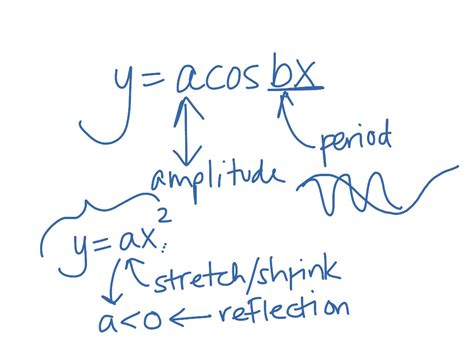 y = a cos bx
period
amplitude
y = ax²
stretch/shrink
a < 0 ← reflection